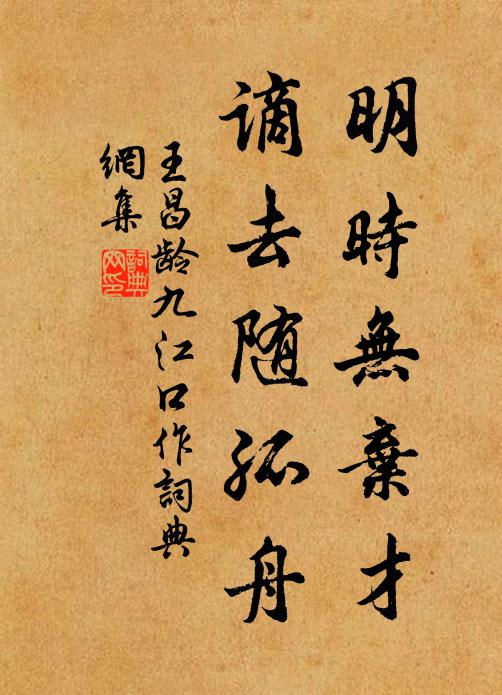 明時無棄才
謫去随孤舟
王昌龄九江口作詞典
網集
詞典
网印